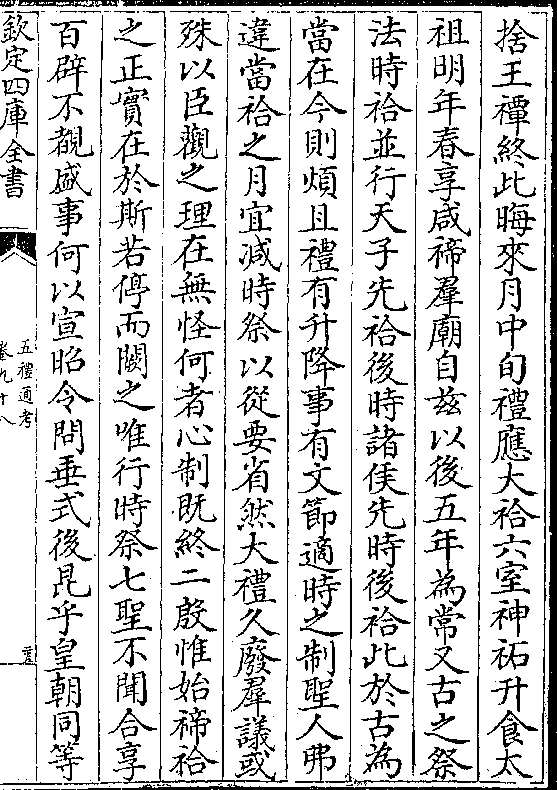 捨王禫終此晦來月中旬禮應大祫六室神祏升食太
祖明年春享咸禘羣廟自兹以後五年為常又古之祭
法時祫並行天子先祫後時諸侯先時後祫此於古為
當在今則煩且禮有升降事有文節適時之制聖人弗
違當祫之月宜減時祭以從要省然大禮久廢羣議或
殊以臣觀之理在無怪何者心制既終二殷惟始禘祫
之正實在於斯若停而闕之唯行時祭七聖不聞合享
百辟不覩盛事何以宣昭令問垂式後昆乎皇朝同等
欽定四庫全書
五禮通考
卷九十八